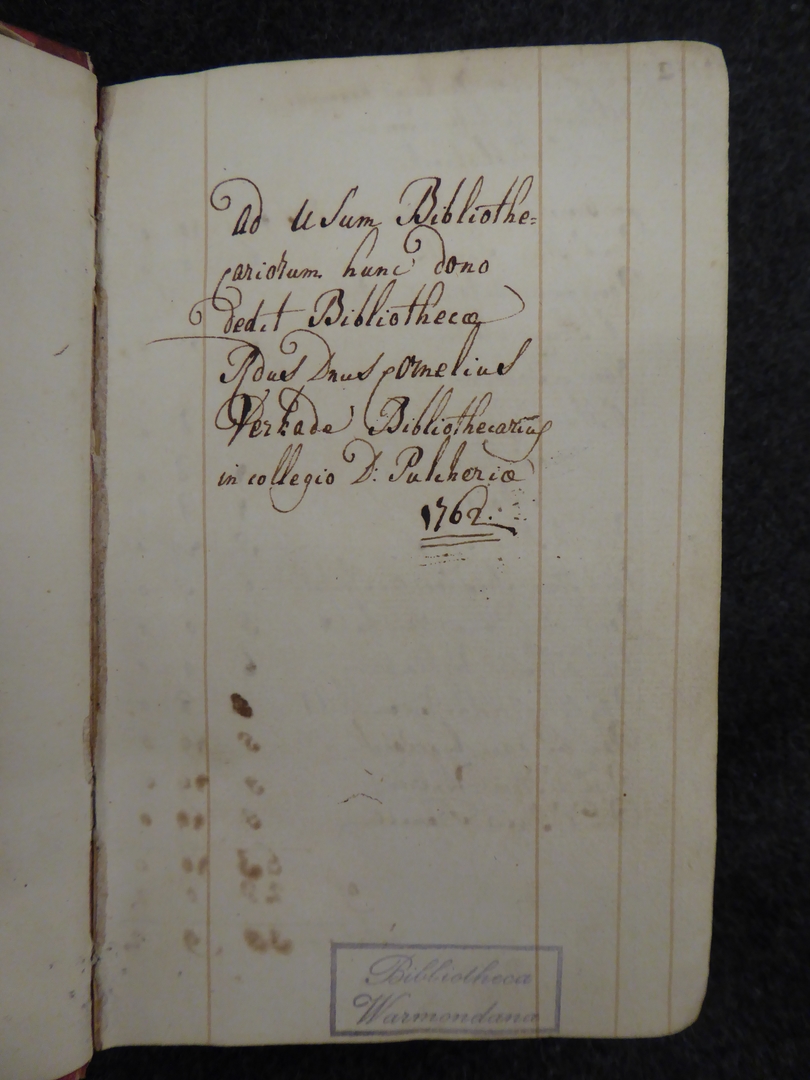 ad usum Bibliothe=
cariorum hunc dono
dedit Bibliothecæ
Rdus Dnus Cornelius
Verkade Bibliothecarius
in collegio D: Pulcheriæ
1762.
Bibliotheca
Warmondana